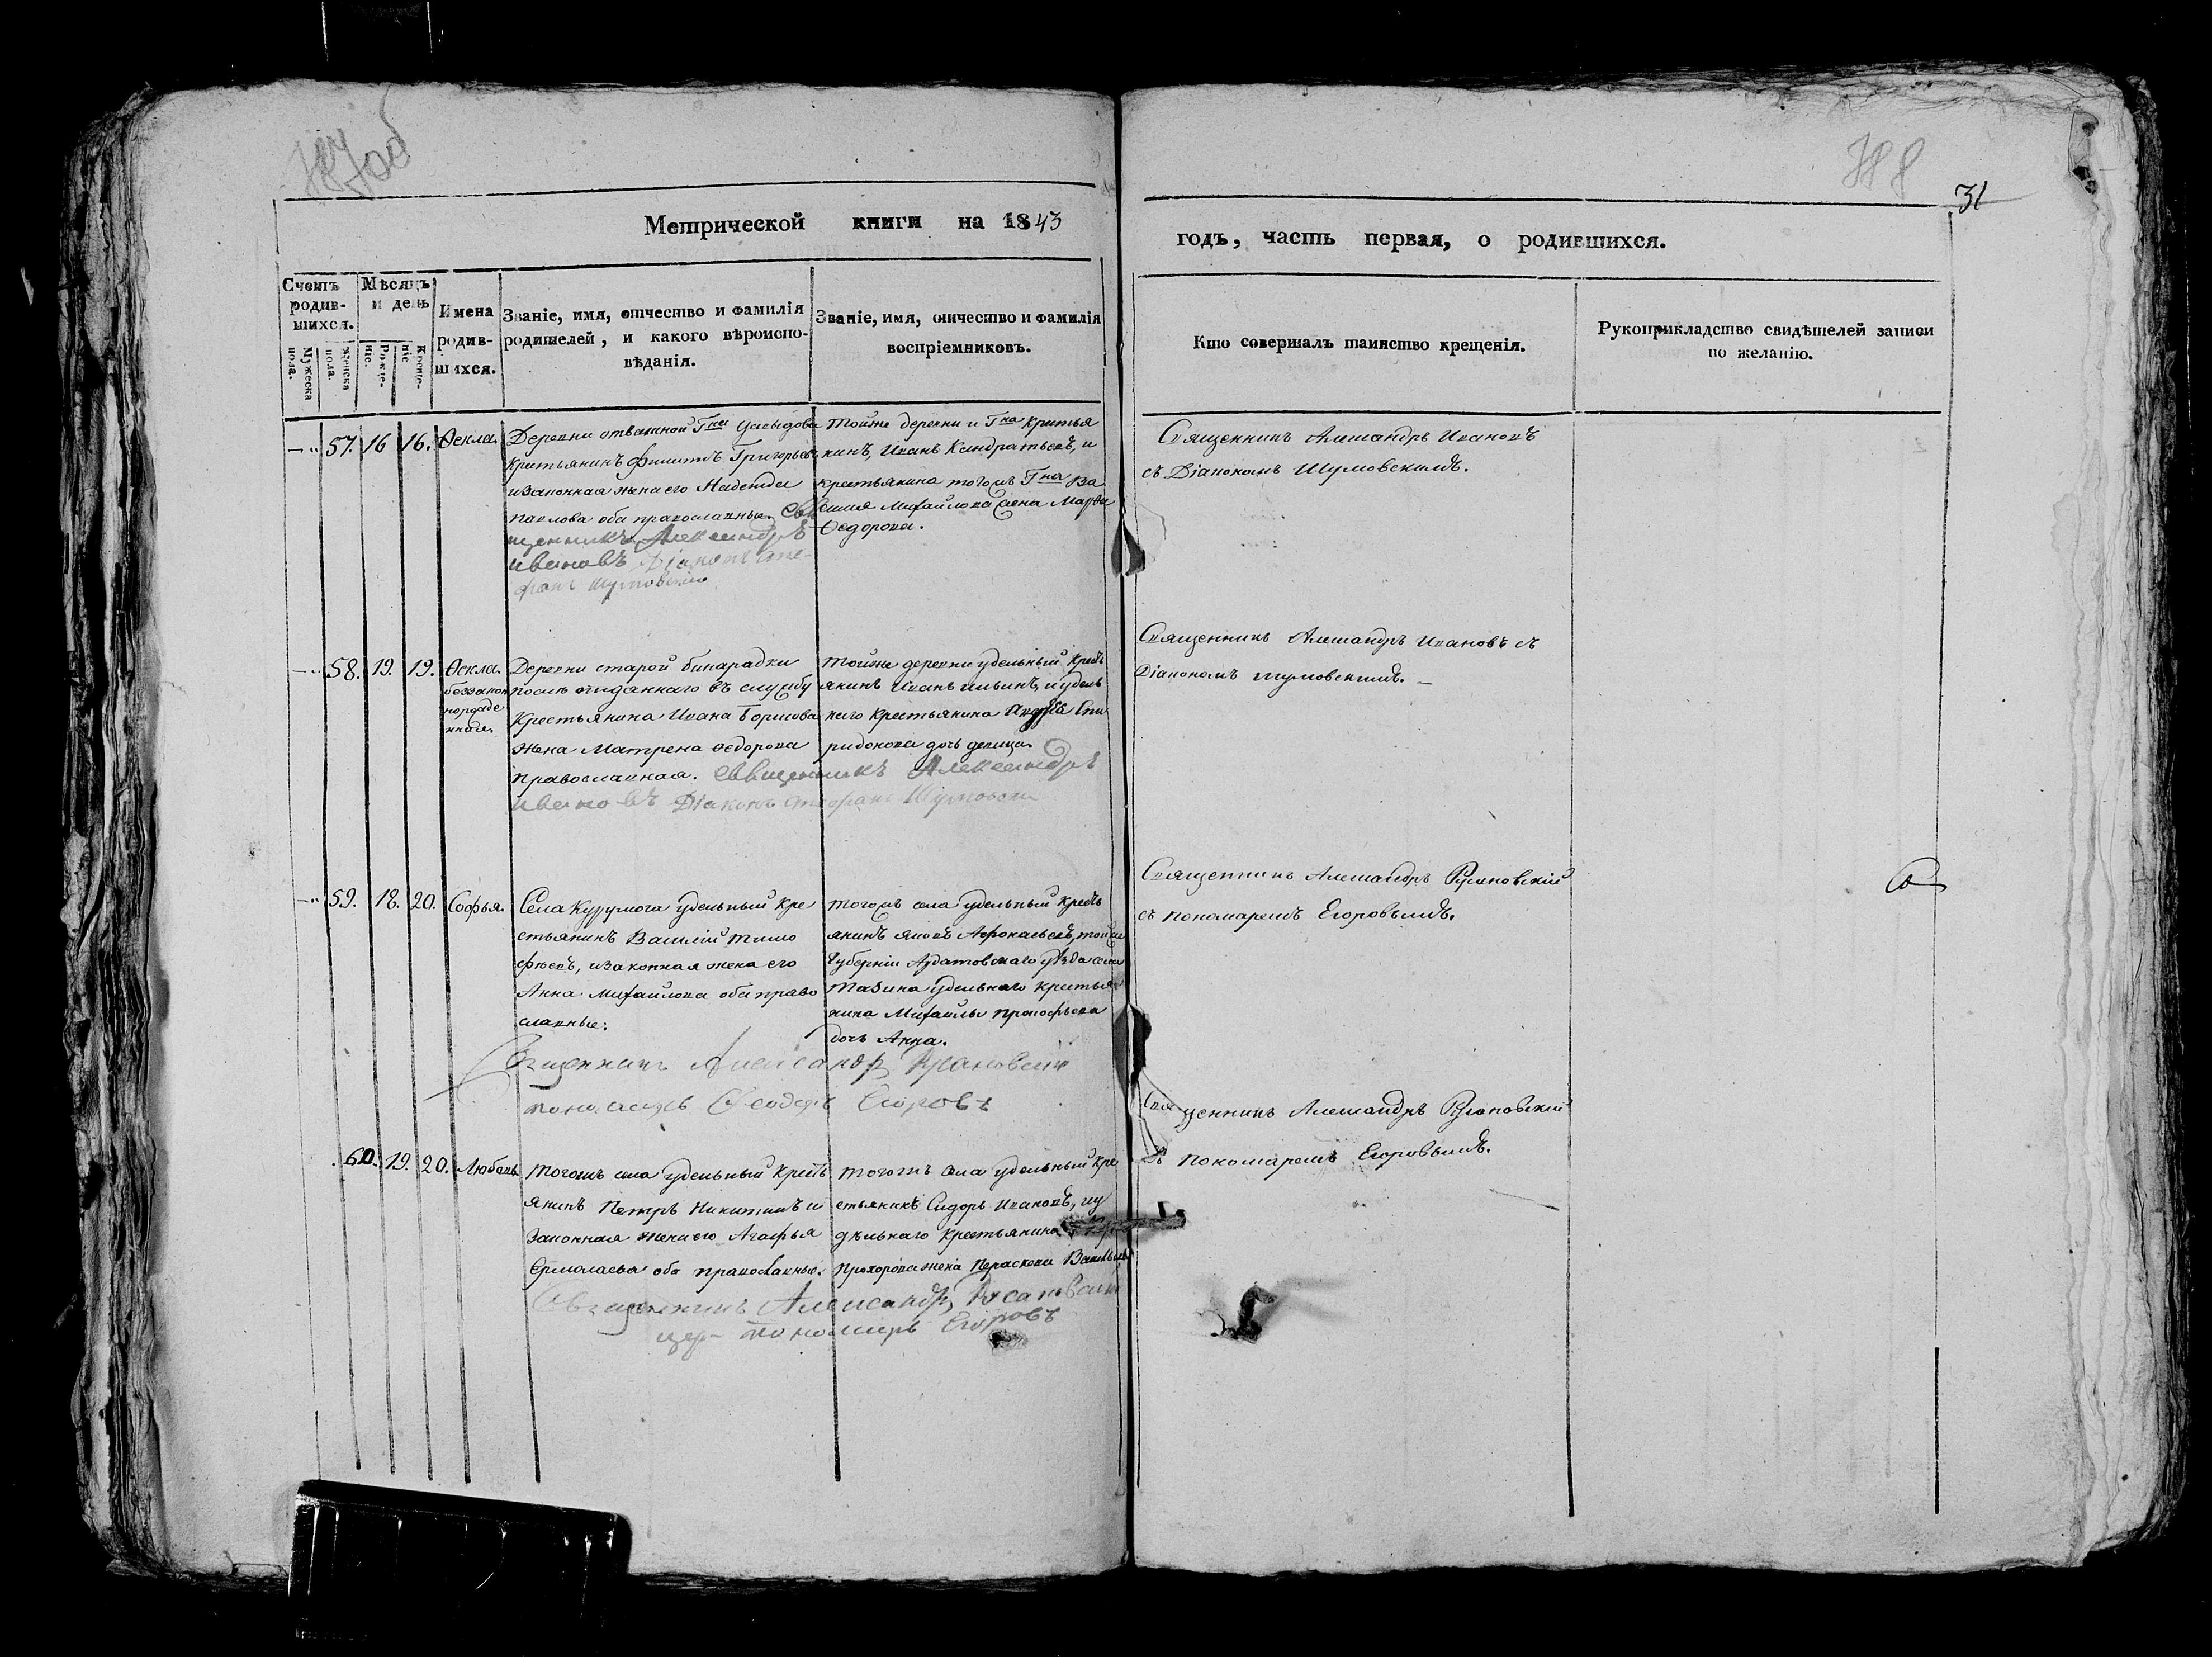 Метрической книги на 1843
годъ, часть первая, о родившихся.
31
Счетъ родив-
шихся.
Мужеска пола.
Женска пола.
Мѣсяцъ
и день
Рожде-
ніе.
Креще-
ніе.
Имена
родив-
шихся.
Званіе, имя, отчество и фамилія
родителей, и какого вѣроиспо-
вѣданія.
Званіе, имя, отчество и фамилія
воспріемниковъ.
Кто совершалъ таинство крещенія.
Рукоприкладство свидѣтелей записи
по желанію.
57. 16 16. Ѳекла.
Деревни отважной Гна
Григорьевъ
и законная жена его Надежда
Павлова оба православные. Свя
щенникъ Александръ
Ивановъ Діаконъ Сте-
фанъ Шумовскій
Тойже деревни и Гна
нинъ, Иванъ Кандратьевъ, и
крестьянина тогожъ Гна Ва
силія Михайлова жена Марфа
Ѳедорова.
Священникъ Александръ Ивановъ
съ Діакономъ Шумовскимъ.
58. 19. 19. Ѳекла.
беззакон
норожде
нная.
Деревни старой бинарадки
после отданнаго въ службу
Крестьянина Ивана Борисова
жена Матрена Ѳедорова
православная. Священникъ Александръ
Ивановъ Діаконъ Стефанъ Шумовски
Тойже деревни удельный крест
янинъ Иванъ Ильинъ, и удель
наго крестьянина Спи
ридонова дочь девица
Священникъ Александръ Ивановъ съ
Діакономъ Шумовскимъ.
59. 18. 20. Софья.
Села Курумоча удельный кре
стьянинъ Василій Тимо
фѣевъ, и законная жена его
Анна Михайлова оба право
славные.
Священникъ Александръ Русановскій
пономарь Ѳеодоръ Егоровъ
тогожъ села удельный крест
янинъ Яковъ Афонасьевъ, тойже
Губерніи Ардатовскаго уѣзда села
удельнаго крестья
нина Михайлы Прокофьева
дочь Анна.
Священникъ Александръ Русановскій
съ пономаремъ Егоровымъ.
60. 19. 20. Любовь
Тогожъ села удельный крест
янинъ Петръ Никитинъ и
законная жена его Агафья
Ермолаева оба православные.
Священникъ Александръ Русановскій
пономарь Егоровъ
тогожъ села удельный кре
стьянинъ Сидоръ Ивановъ, и у
дѣльнаго крестьянина
Прохорова жена Параскева Васильева
Священникъ Александръ Русановскій
съ пономаремъ Егоровымъ.